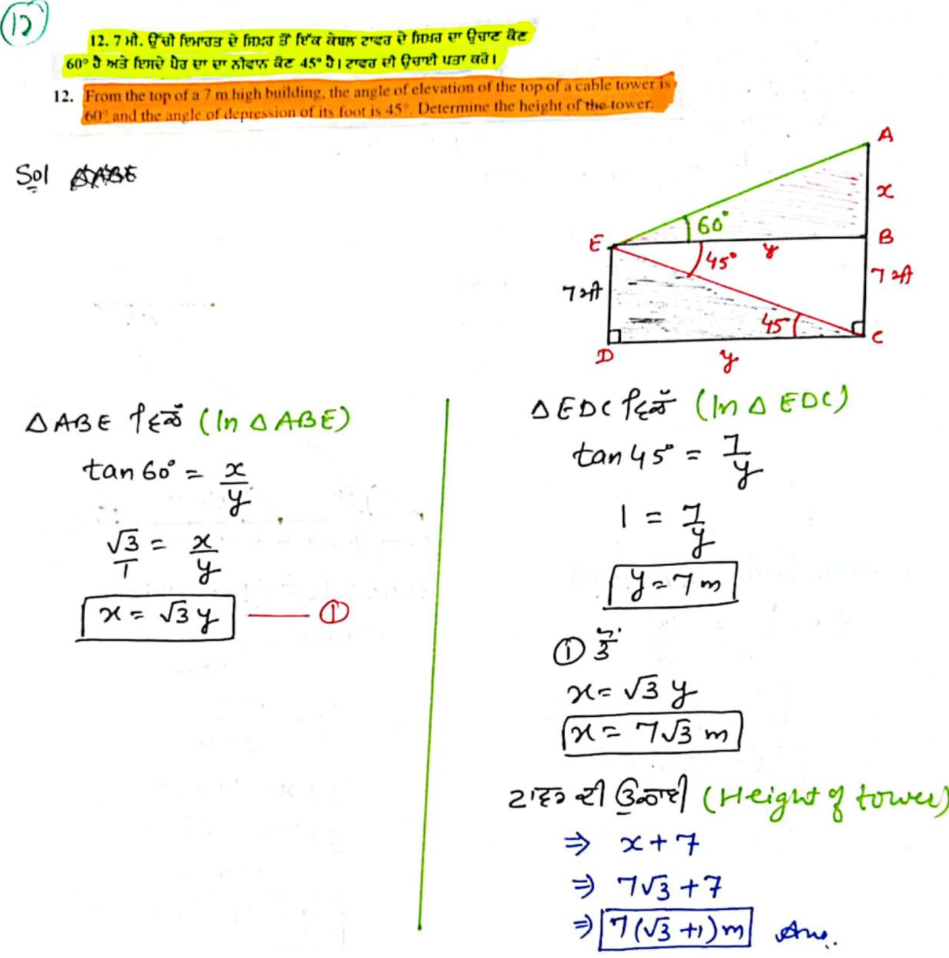 12
12. 7 ਮੀ. ਉੱਚੀ ਇਮਾਰਤ ਦੇ ਸਿਖ਼ਰ ਤੋਂ ਇੱਕ ਕੇਬਲ ਟਾਵਰ ਦੇ ਸਿਖ਼ਰ ਦਾ ਉਚਾਣ ਕੋਣ
60° ਹੈ ਅਤੇ ਇਸਦੇ ਪੈਰ ਦਾ ਦਾ ਨੀਵਾਣ ਕੋਣ 45° ਹੈ। ਟਾਵਰ ਦੀ ਉਚਾਈ ਪਤਾ ਕਰੋ।
12. From the top of a 7 m high building, the angle of elevation of the top of a cable tower is
60° and the angle of depression of its foot is 45°. Determine the height of the tower.
Sol
A
x
60°
E
B
45°
y
7 ਮੀ
7 ਮੀ
45°
C
D
y
△ABE ਵਿੱਚੋਂ (In △ ABE)
tan 60° = x/y
√3/1 = x/y
x = √3 y ①
△ EDC ਵਿੱਚੋਂ (In △ EDC)
tan 45° = 7/y
1 = 7/y
y = 7 m
① ਤੋਂ
x = √3 y
x = 7√3 m
ਟਾਵਰ ਦੀ ਉਚਾਈ (Height of tower)
⇒ x + 7
⇒ 7√3 + 7
⇒ 7(√3 +1) m Ans.